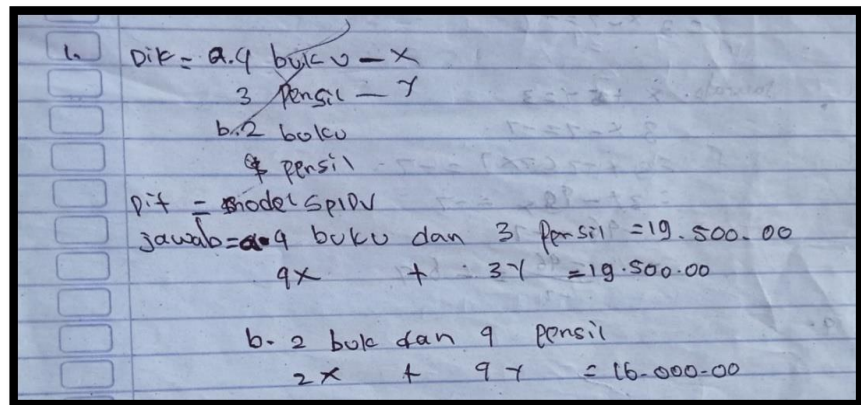 1. Dik = a. 4 buku — X
3 Pensil — Y
b. 2 buku
4 pensil
Dit = model SPlDV
Jawab = a. 4 buku dan 3 Pensil = 19.500.00
4X + 3Y = 19.500.00
b. 2 buk dan 4 Pensil
2X + 4Y = 16.000.00